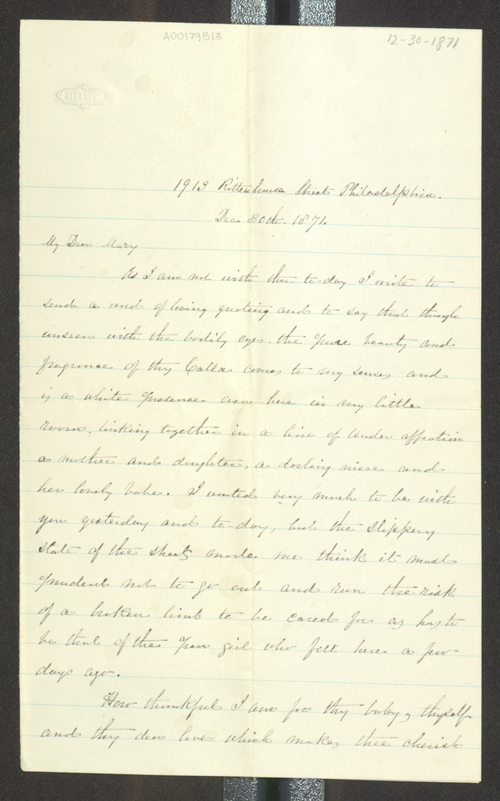 A00179513
12-30-1871
1913 Rittenhouse Street Philadelphia.
Dec. 30th. 1871.
My Dear Mary
As I am not with thee to-day I write to
send a word of loving greeting and to say that though
unseen with the bodily eyes, the pure beauty and
fragrance of thy Callas comes to my senses and
is a white presence even here in my little
room, linking together in a line of tender affection
a mother and daughter, a darling niece and
her lovely babe. I wanted very much to be with
you yesterday and to-day, but the slippery
state of the streets made me think it most
prudent not to go out and run the risk
of a broken limb to be cared for as has to
be that of the poor girl who fell here a few
days ago.
How thankful I am for thy baby, & thyself
and thy dear love which makes thee cherish